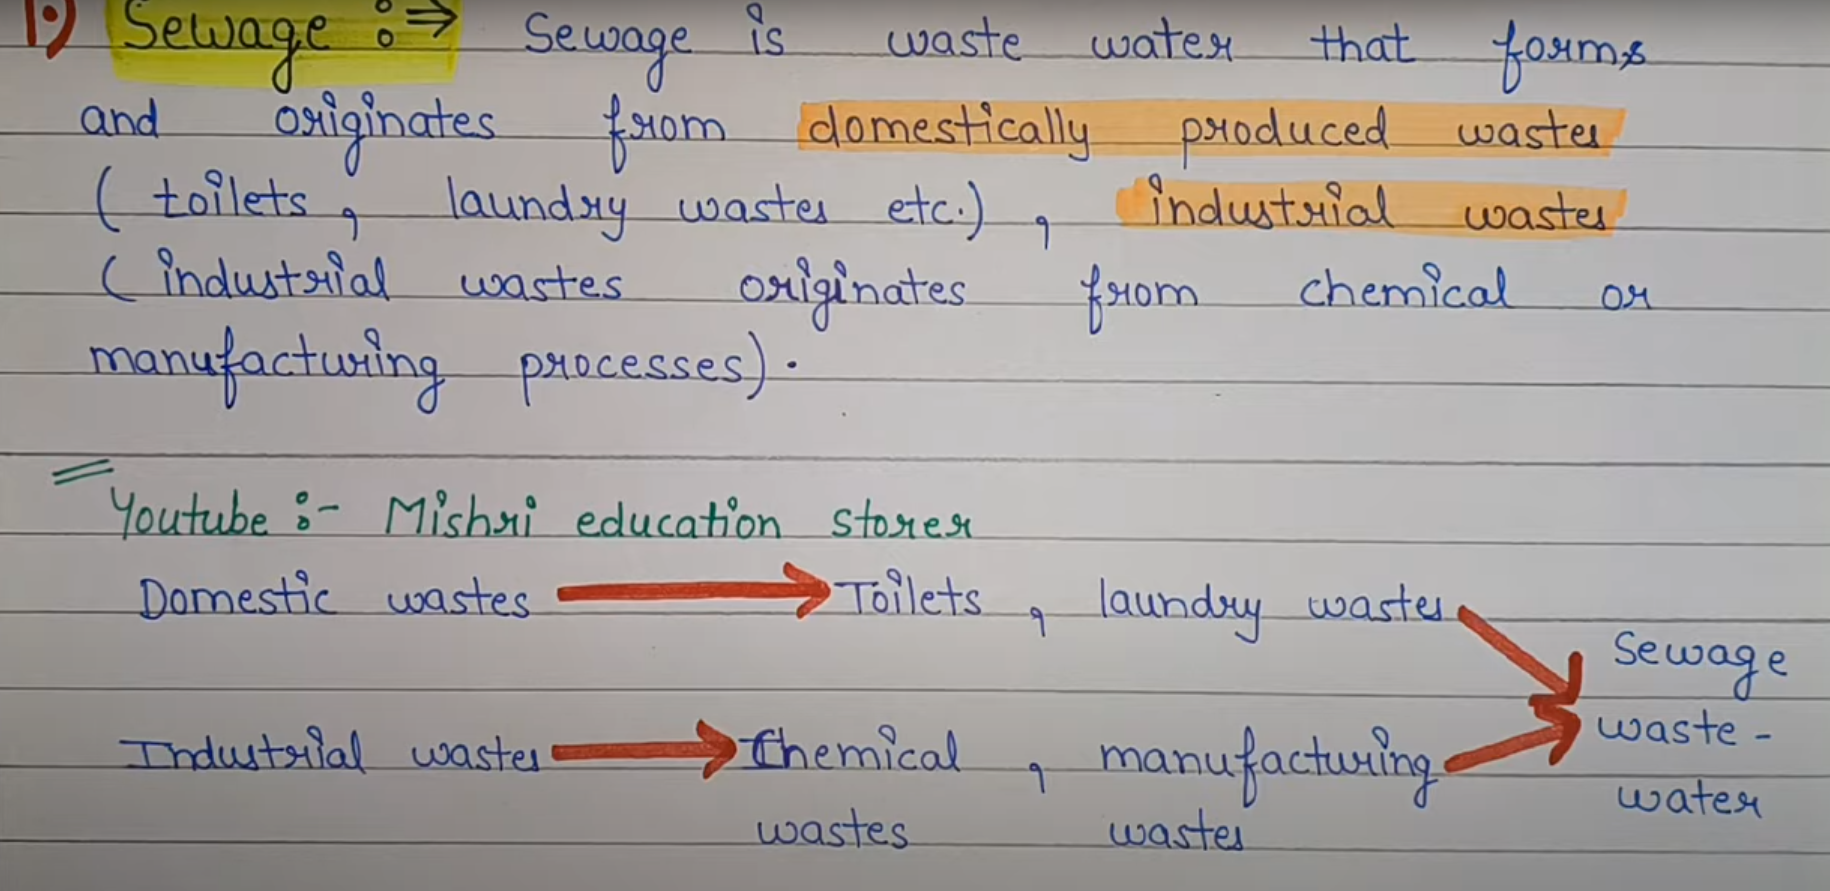 1.) Sewage :⇒ Sewage is waste water that forms
and originates from domestically produced wastes
( toilets , laundry wastes etc.) , industrial wastes
( industrial wastes originates from chemical or
manufacturing processes).
Youtube :- Mishri education storer
Domestic wastes → Toilets , laundry wastes
Industrial wastes → Chemical wastes , manufacturing wastes
Sewage
waste-
water